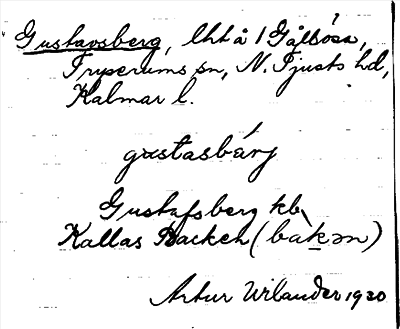 Gustavsberg, lht å 1 Gålösa,
Tryserums sn, N. Tjusts hd,
Kalmar l.
gustasbárj
Gustafsberg kb
Kallas Backen (bakən)
Artur Wilander 1920